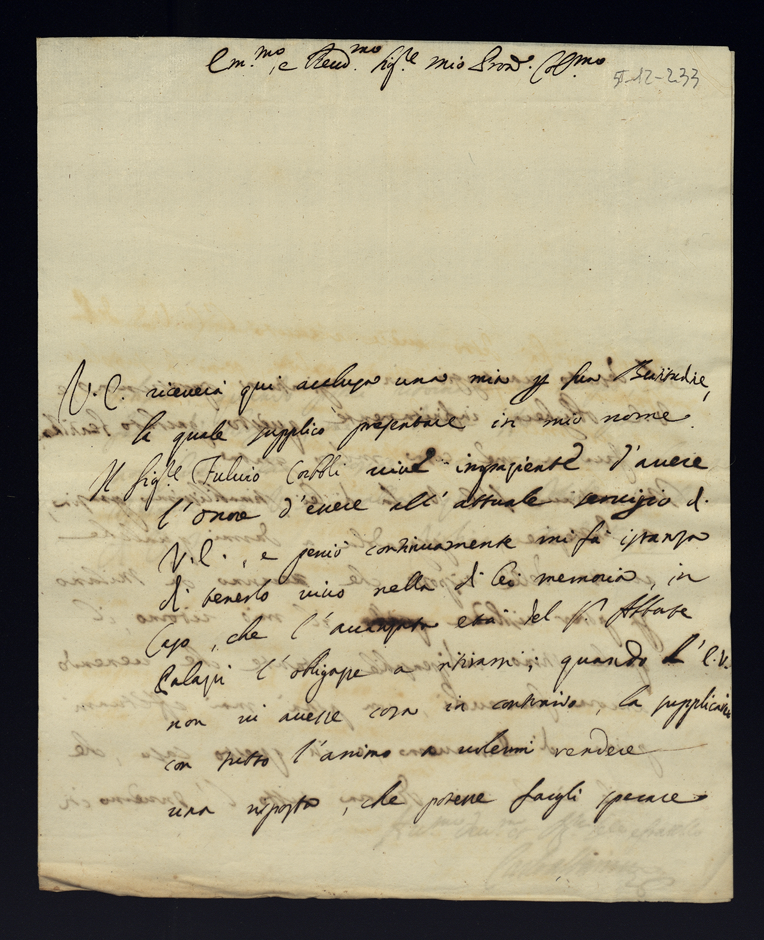 Em.mo, e Reud.mo Sig.re mio Pron. Col.mo
51-12-233
V. E. riceverà qui acclusa una mia p sua
la quale supplico presentare in mio nome.
Il Sig.re Fulvio vive impaziente d'avere
l'onore d'essere all'attuale servizio di
V. E., e perciò continuamente mi fà istanza
di tenerlo vivo nella di Lei memoria, in
Caso, che l'avanzata età del S. Abbate
l'obligasse a ritirarsi; quando l'E. V.
non vi avesse cosa in contrario, la supplicarei
con tutto l'animo a volermi rendere
una risposta, che potesse fargli sperare